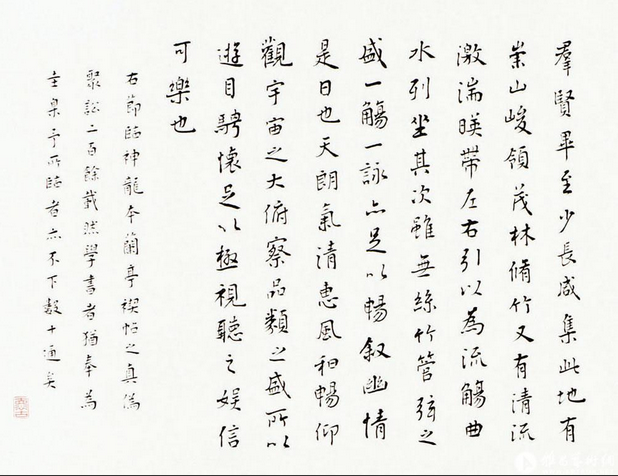 羣賢畢至少長咸集此地有
崇山峻領茂林脩竹又有清流
激湍暎帶左右引以為流觴曲
水列坐其次雖無絲竹管弦之
盛一觴一詠亦足以暢叙幽情
是日也天朗氣清惠風和暢仰
觀宇宙之大俯察品類之盛所以
遊目騁懷足以極視聽之娱信
可樂也
右節臨神龍本蘭亭禊帖之真偽
聚訟二百餘載然學書者猶奉為
圭臬予所臨者亦不下數十通矣